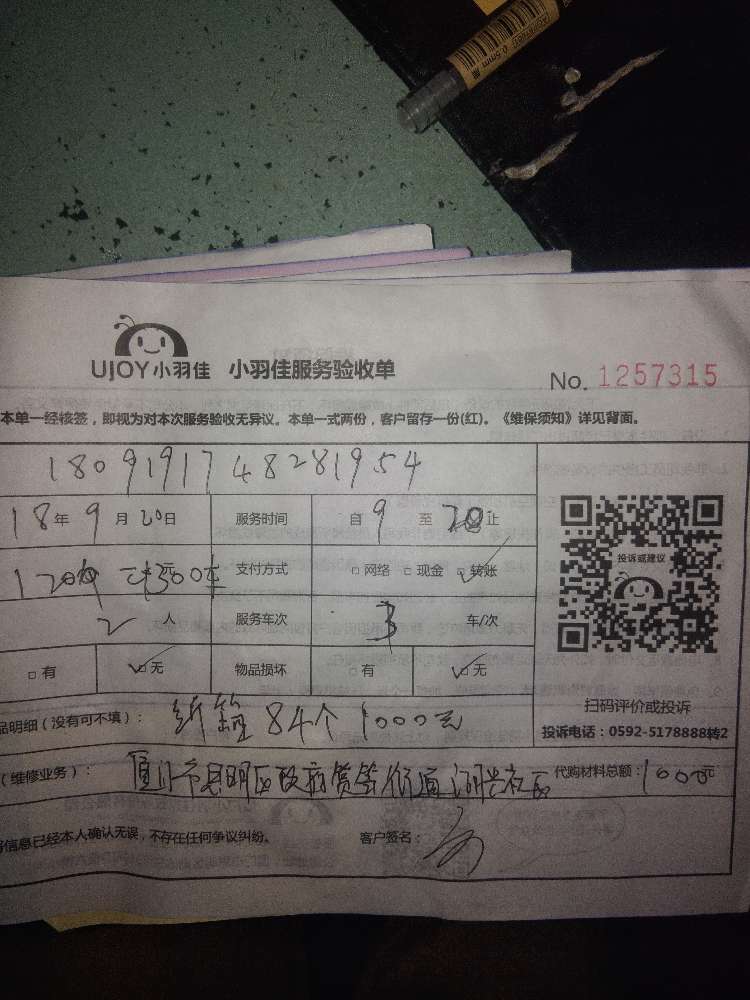 UJOY小羽佳 小羽佳服务验收单
No. 1257315
本单一经核签，即视为对本次服务验收无异议。本单一式两份，客户留存一份(红)。《维保须知》详见背面。
1809191748281954
18年9月20日 服务时间 自9至20止
支付方式 □网络 □现金 ☑转账
2人 服务车次 3车/次
□有 ☑无 物品损坏 □有 ☑无
投诉或建议
扫码评价或投诉
投诉电话：0592-5178888转2
品明细（没有可不填）：纸箱84个1000元
（维修业务）：厦门市思明区 街道 代购材料总额：1000元
信息已经本人确认无误，不存在任何争议纠纷。 客户签名：